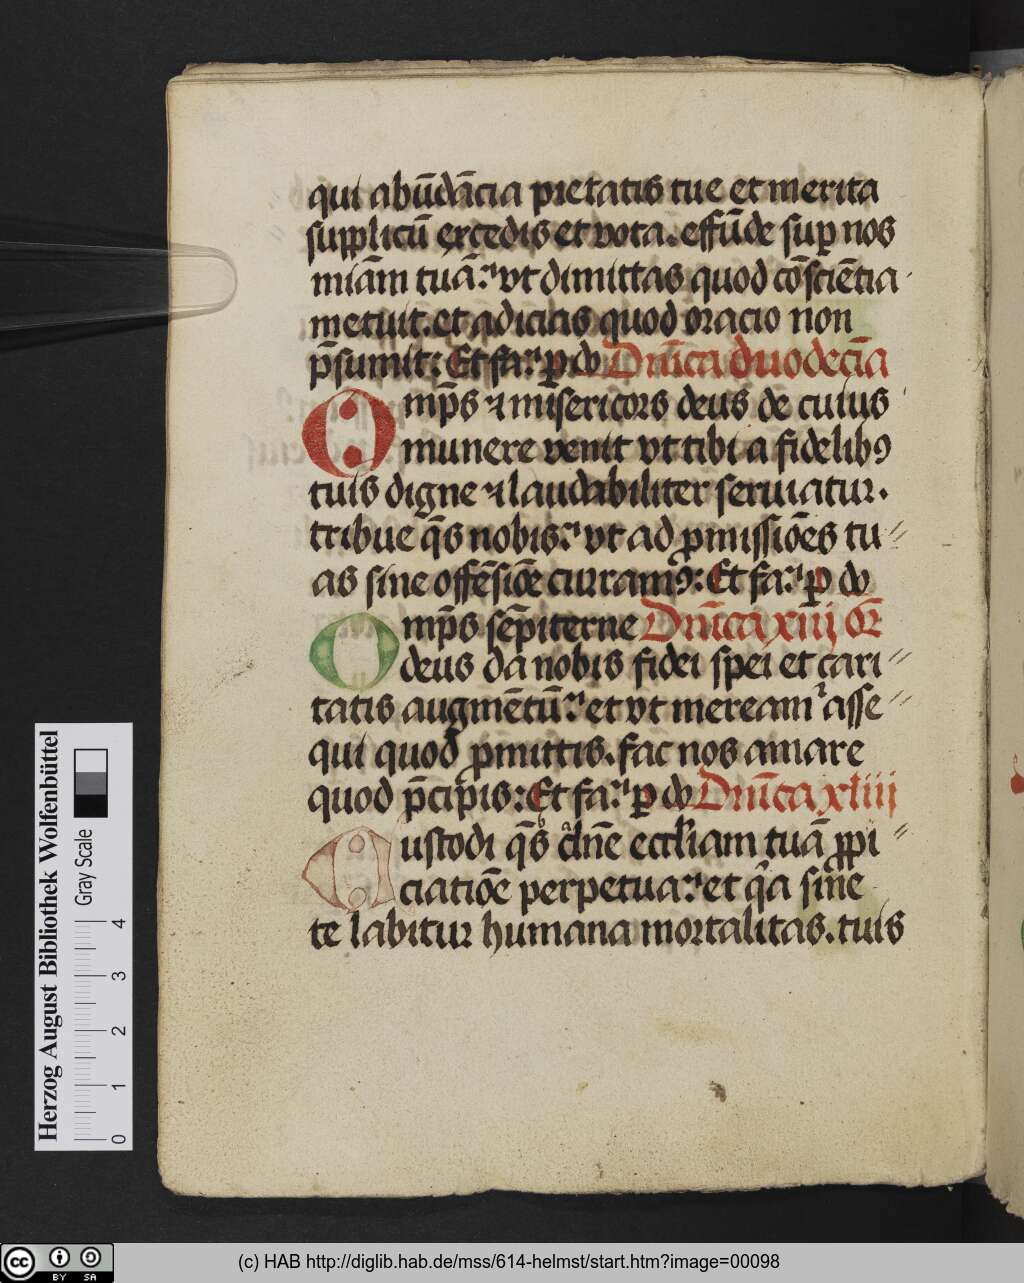 qui abūdācia pietatis tue et merita
supplicū excedis et vota. effūde suꝑ nos
miām tuā: vt dimittas quod cōsciētia
metuit. et adicias quod oracio non
p̄sumit: Et fa: ꝑ do Dn̄ica duodecīa
Omp̄s ⁊ misericors deus de cuius
munere venit vt tibi a fidelibꝯ
tuis digne ⁊ laudabiliter seruiatur.
tribue q̄s nobis: vt ad ꝓmissiōes tu//
as sine offēsiōe curramꝯ: Et fa: ꝑ do
Omp̄s sēpiterne Dn̄ica xiij
deus da nobis fidei spei et cari//
tatis augmētū: et vt meream᷑ asse//
qui quod ꝓmittis. fac nos amare
quod p̄cipis: Et fa: ꝑ do Dn̄ica xiiij
Custodi q̄s dn̄e eccl̄iam tuā ꝓpi//
ciatiōe perpetua: et qͣa sine
te labitur humana mortalitas. tuis
Herzog August Bibliothek Wolfenbüttel
Gray Scale
0 1 2 3 4
cc BY SA
(c) HAB http://diglib.hab.de/mss/614-helmst/start.htm?image=00098